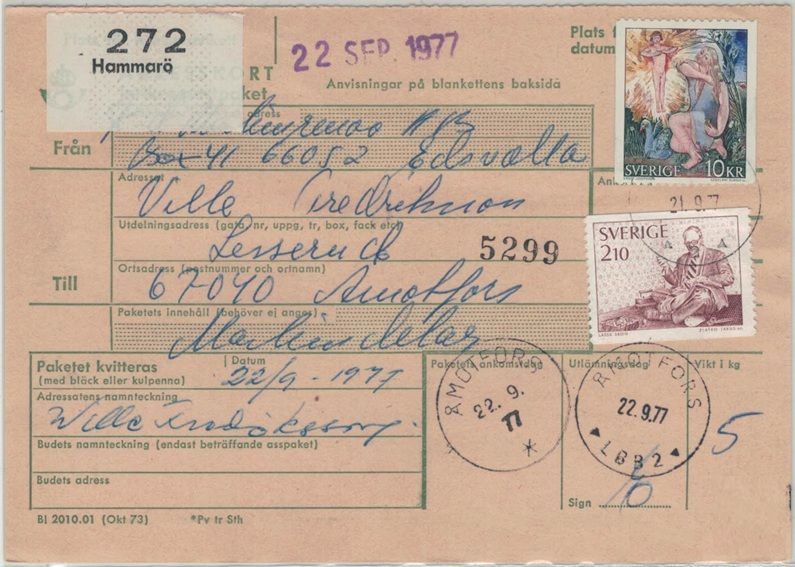 272
Hammarö
22 SEP. 1977
KORT
paket
Plats f
datum
Anvisningar på blankettens baksida
adress
Från
Box 41 66052 Edsvalla
Adressat
Ville Fredriksson
Utdelningsadress (gata, nr, uppg, tr, box, fack etc)
Lesserud
5299
Till
Ortsadress (postnummer och ortnamn)
67040 Åmotfors
Paketets innehåll (behöver ej anges)
Maskindelar
SVERIGE 10KR
21.9.77
SVERIGE
210
Paketet kvitteras
(med bläck eller kulpenna)
Datum
22/9-1977
Adressatens namnteckning
Wille Fredriksson
Budets namnteckning (endast beträffande asspaket)
Budets adress
Paketets ankomstdag
Utlämningsdag
Vikt i kg
ÅMOTFORS
22.9.
77
*
ÅMOTFORS
22.9.77
LBB2
5
Sign
BI 2010.01 (Okt 73)
*Pv tr Sth